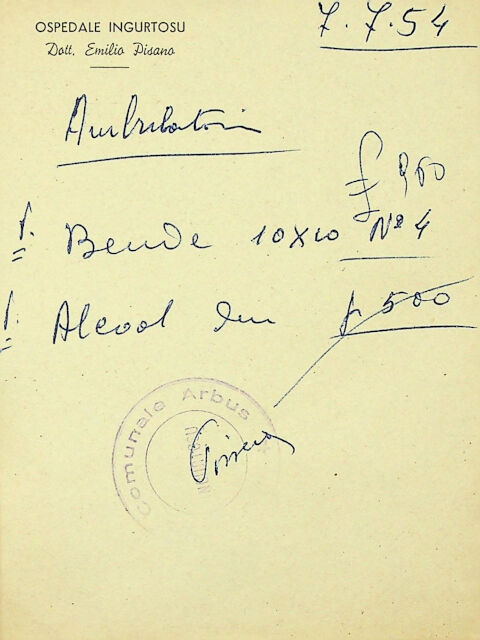 OSPEDALE INGURTOSU
Dott. Emilio Pisano
7.7.54
Ambulatorio
£ 960
1. Bende 10x10 Nº 4
1. Alcool den £ 500
Comunale Arbus
Pisano